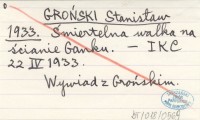 GROŃSKI Stanisław
1933. Śmiertelna walka na
ścianie Ganku. — IKC
22 IV 1933.
Wywiad z Grońskim.